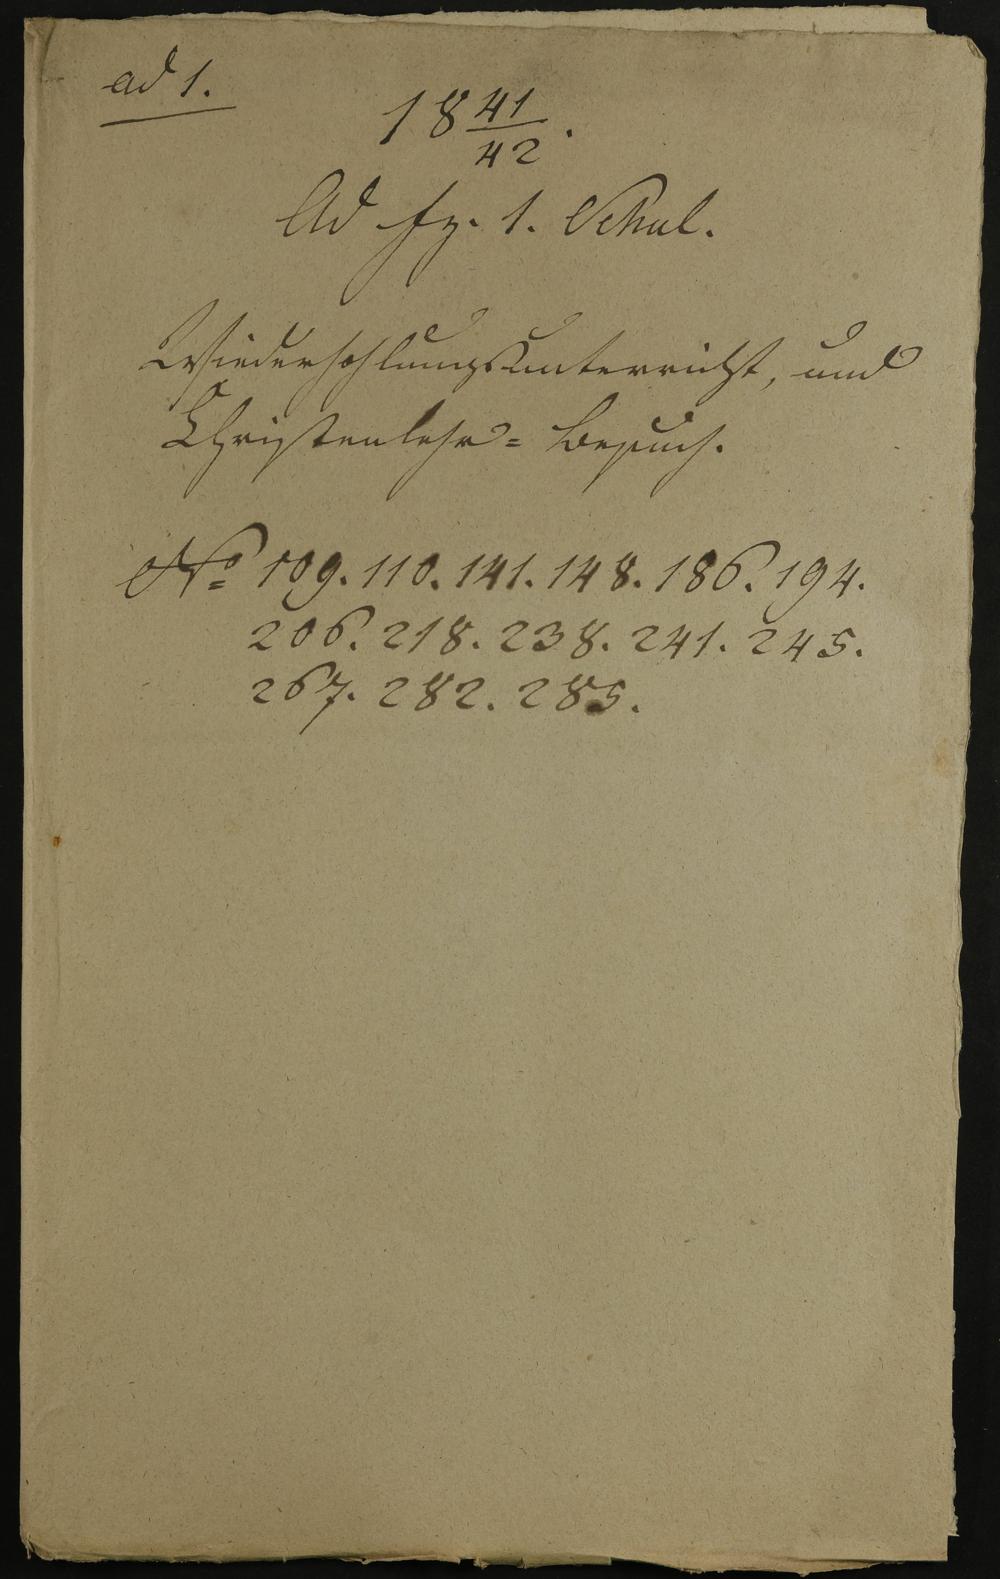 ad 1.
18 41/42.
Ad fz. 1. Schul.
Wiederhohlungsunterricht, und
Christenlehr= Besuch.
No 109. 110. 141. 148. 186. 194.
206. 218. 238. 241. 245.
267. 282. 285.